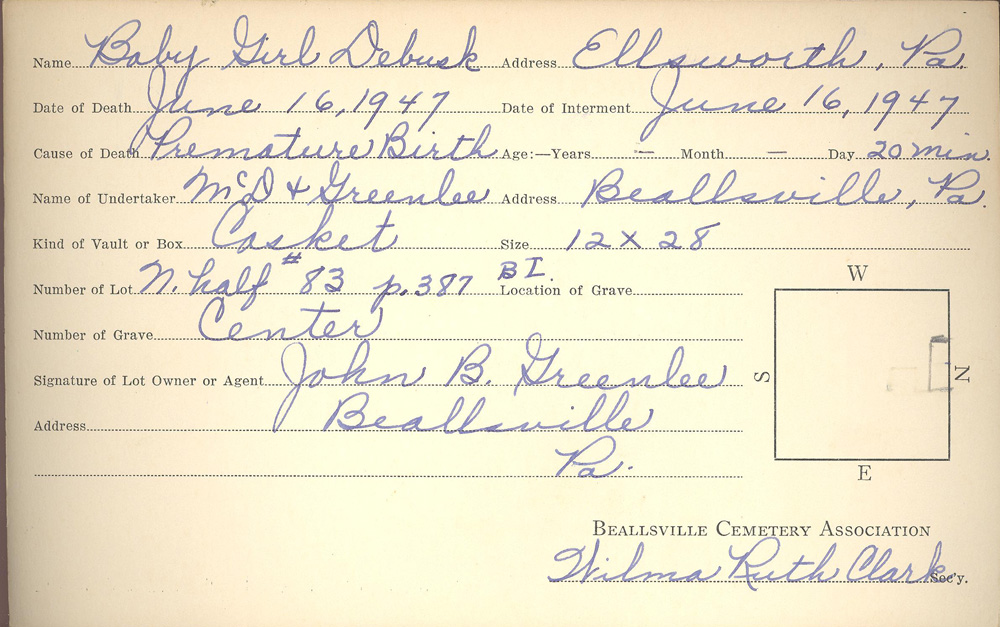 Name Baby Girl Debusk Address Ellsworth, Pa.
Date of Death June 16, 1947 Date of Interment June 16, 1947
Cause of Death Premature Birth Age:—Years — Month — Day 20 min.
Name of Undertaker McD & Greenlee Address Beallsville, Pa.
Kind of Vault or Box Casket Size 12 x 28
Number of Lot N. half #83 p.387 BI. Location of Grave
Number of Grave Center
Signature of Lot Owner or Agent John B. Greenlee
Address Beallsville
Pa.
W
S
N
E
BEALLSVILLE CEMETERY ASSOCIATION
Wilma Ruth Clark Sec'y.